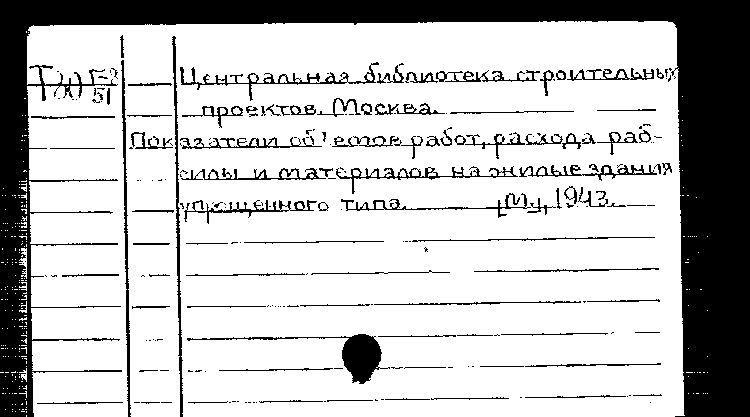 Т(х) Г-2
51
Центральная библиотека строительных
проектов. Москва.
Показатели об'емов работ, расхода раб-
силы и материалов на жилые здания
упрощенного типа. [М.], 1943.